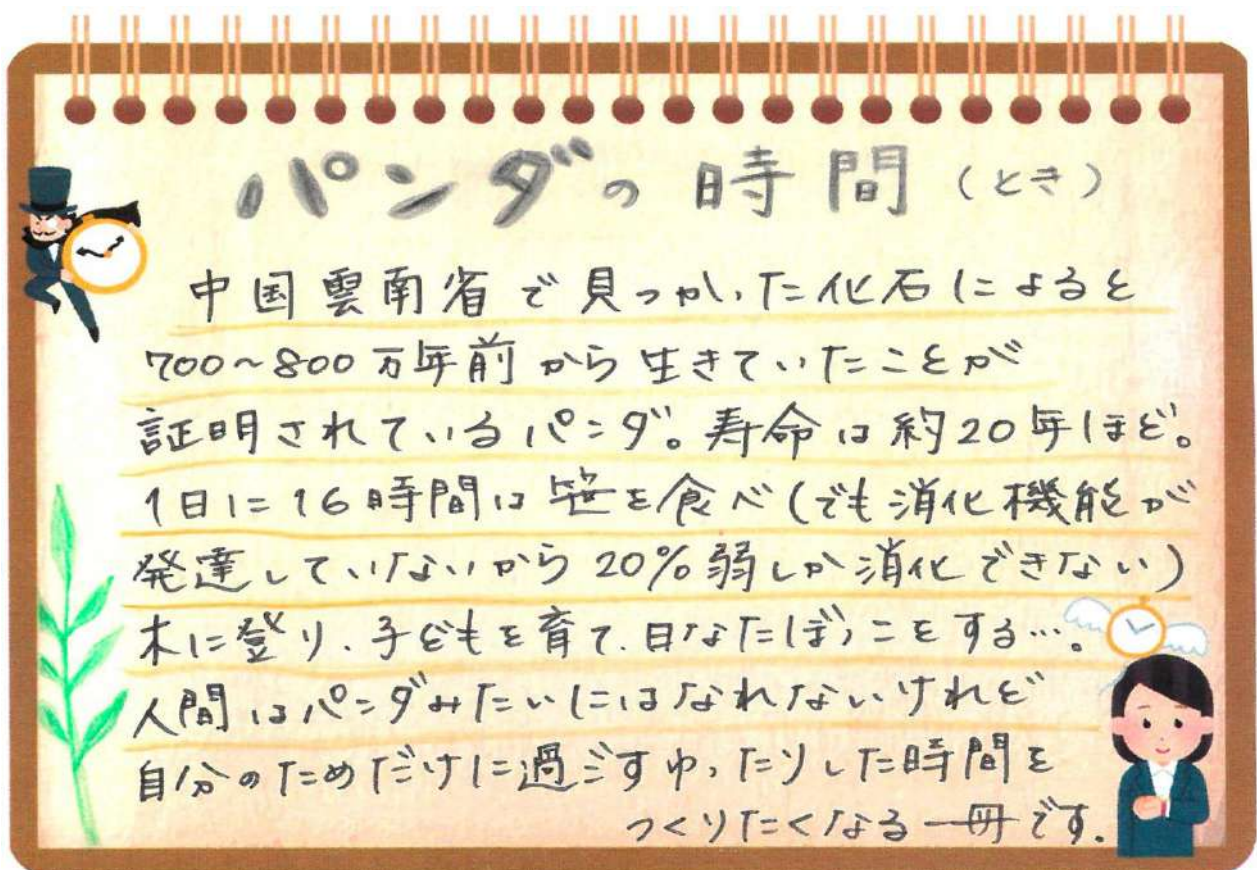 パンダの時間（とき）
中国雲南省で見つかった化石によると
700～800万年前から生きていたことが
証明されているパンダ。寿命は約20年ほど。
1日に16時間は笹を食べ（でも消化機能が
発達していないから20％弱しか消化できない）
木に登り、子どもを育て、日なたぼっこをする…。
人間はパンダみたいにはなれないけれど
自分のためだけに過ごすゆったりした時間を
つくりたくなる一冊です。